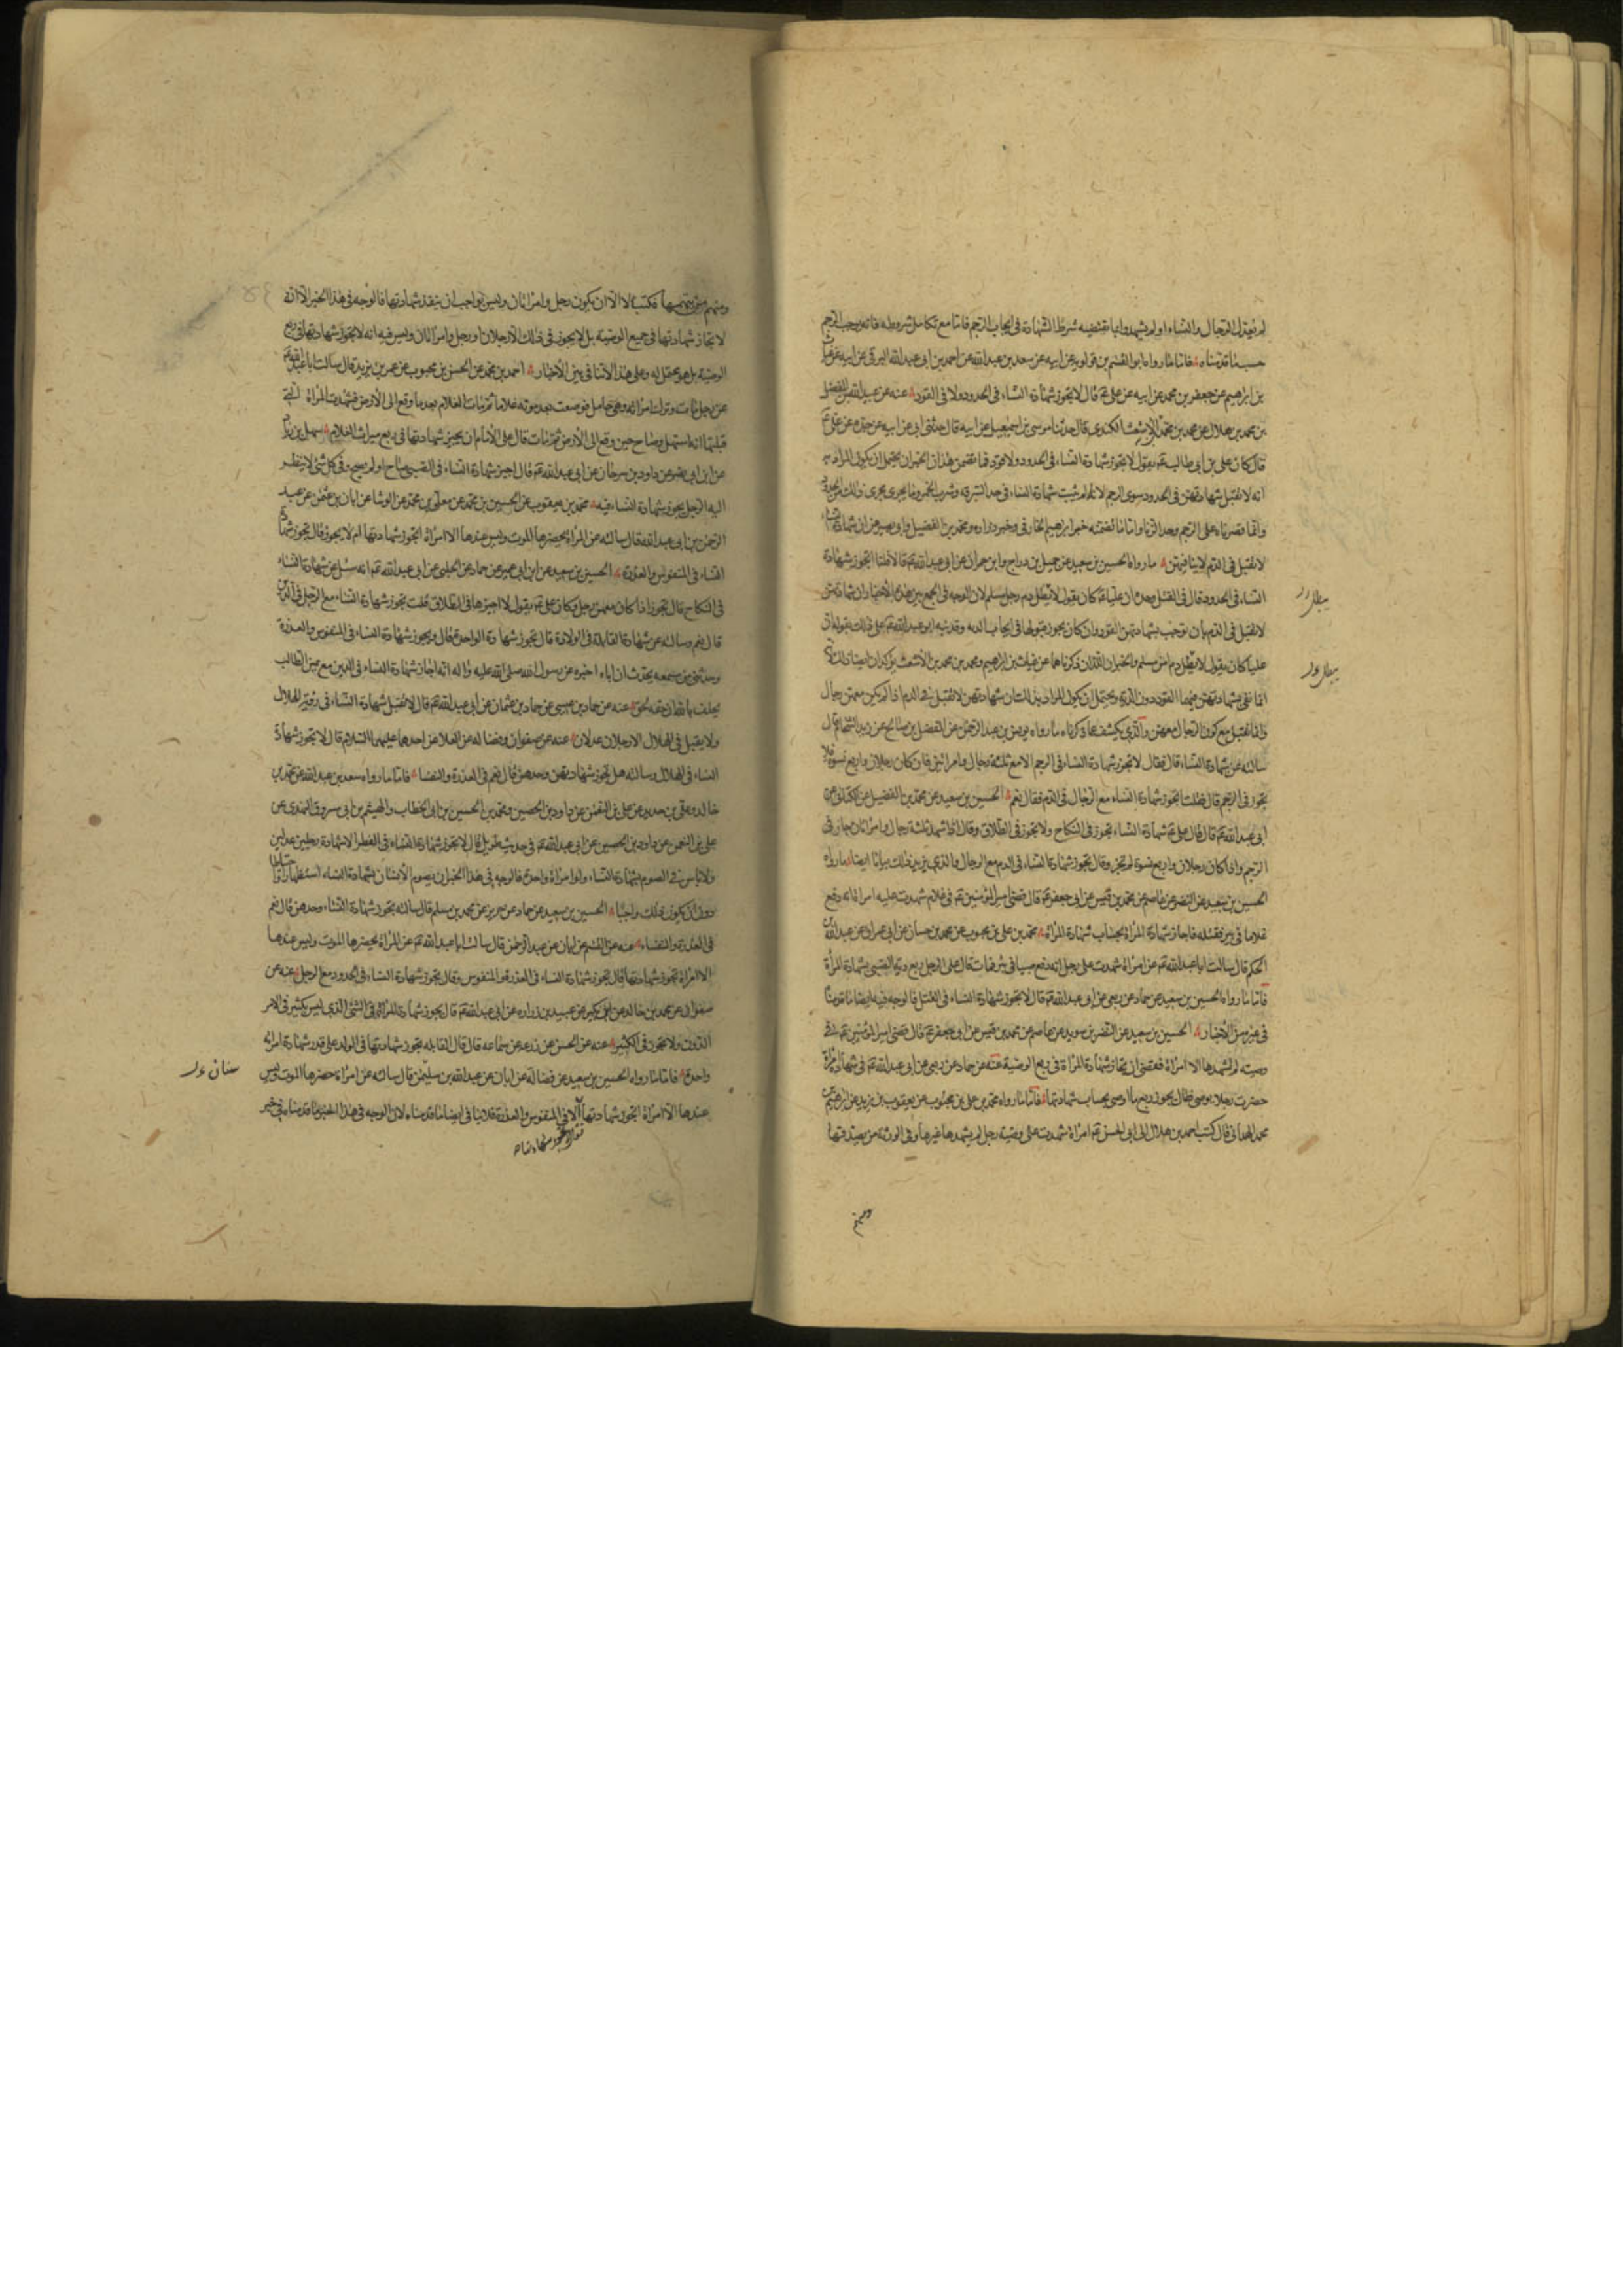 لم يعدل الرجال والنساء او لم يشهدوا بما تقتضيه شرط الشهادة في ايجاب الرجم فاما مع تكامل شروطه فانه يوجب الرجم
حسب ما قدمناه فاما ما رواه ابو القسم بن قولويه عن ابيه عن سعد بن عبد الله عن احمد بن ابي عبد الله البرقي عن ابيه عن غياث
بن ابرهيم عن جعفر بن محمد عن ابيه عن علي عم قال لا تجوز شهادة النساء في الحدود ولا في القود عنه عن عبيد الله بن الفضل
بن محمد بن هلال عن محمد بن محمد الاشعث الكندي قال حدثنا موسى بن اسمعيل عن ابيه قال حدثني ابي عن ابيه عن جده عن علي عم
قال كان علي بن ابي طالب عم يقول لا تجوز شهادة النساء في الحدود ولا قود فما تضمن هذان الخبران يحتمل ان يكون المراد به
انه لا تقبل شهادتهن في الحدود سوى الرجم لانه لم يثبت شهادة النساء في حد السرقة وشرب الخمر وما يجري مجرى ذلك من الحدود
وانما قصرناه على الرجم وحد الزنا واما ما تضمنه خبر ابرهيم الخارقي وخبر زرارة ومحمد بن الفضيل وابي بصير من ان شهادة النساء
لا تقبل في الدم لا ينافيهن ما رواه الحسين بن سعيد عن جميل بن دراج وابن حمران عن ابي عبد الله عم قالا قلنا اتجوز شهادة
النساء في الحدود قال في القتل وحده ان عليا عم كان يقول لا يطل دم رجل مسلم لان الوجه في الجمع بين هذه الاخبار ان شهادتهن
لا تقبل في الدم بان توجب بشهادتهن القود وان كان يجوز قبولها في ايجاب الدية وقد نبه ابو عبد الله عم على ذلك بقوله ان
عليا كان يقول لا يطل دم امرئ مسلم والخبران اللذان ذكرناهما عن غياث بن ابرهيم ومحمد بن محمد بن الاشعث يؤكدان ايضا ذلك لانه
انما نفى بشهادتهن فيهما القود دون الدية ويحتمل ان يكون المراد بذلك ان شهادتهن لا تقبل في الدم اذا لم يكن معهن رجال
وانما تقبل مع كون الرجال معهن والذي يكشف عما ذكرناه ما رواه يونس بن عبد الرحمن عن المفضل بن صالح عن زيد الشحام قال
سالته عن شهادة النساء قال فقال لا تجوز شهادة النساء في الرجم الا مع ثلثة رجال وامراتين فان كان رجلان واربع نسوة فلا
تجوز في الرجم قال فقلت اتجوز شهادة النساء مع الرجال في الدم فقال نعم الحسين بن سعيد عن محمد بن الفضيل عن الكناني عن
ابي عبد الله عم قال قال علي عم شهادة النساء تجوز في النكاح ولا تجوز في الطلاق وقال اذا شهد ثلثة رجال وامراتان جاز في
الرجم واذا كان رجلان واربع نسوة لم تجز وقال تجوز شهادة النساء في الدم مع الرجال والذي يزيد ذلك بيانا ايضا ما رواه
الحسين بن سعيد عن النضر عن عاصم عن محمد بن قيس عن ابي جعفر عم قال قضى امير المؤمنين عم في غلام شهدت عليه امراة انه دفع
غلاما في بير فقتله فاجاز شهادة المراة بحساب شهادة المراة محمد بن علي بن محبوب عن محمد بن حسان عن ابي عمران عن عبد الله بن
الحكم قال سالت ابا عبد الله عم عن امراة شهدت على رجل انه دفع صبيا في بئر فمات قال على الرجل ربع دية الصبي بشهادة المراة
فاما ما رواه الحسين بن سعيد عن حماد عن ربعي عن ابي عبد الله عم قال لا تجوز شهادة النساء في القتل فالوجه فيه ايضا ما قدمناه
في غيره من الاخبار الحسين بن سعيد عن النضر بن سويد عن عاصم عن محمد بن قيس عن ابي جعفر عم قال قضى امير المؤمنين عم في
وصية لم يشهدها الا امراة فقضى ان تجاز شهادة المراة في ربع الوصية عنه عن حماد عن ربعي عن ابي عبد الله عم في شهادة امراة
حضرت رجلا يوصي فقال يجوز ربع ما اوصى بحساب شهادتها فاما ما رواه محمد بن علي بن محبوب عن يعقوب بن يزيد عن ابرهيم بن
محمد الهمداني قال كتب احمد بن هلال الى ابي الحسن عم امراة شهدت على وصية رجل لم يشهدها غيرها وفي الورثة من يصدقها
ومنهم
ومنهم من يتهمها فكتب لا الا ان يكون رجل وامراتان وليس بواجب ان ينفذ شهادتها فالوجه في هذا الخبر الا انه
لا تجاز شهادتها في جميع الوصية بل لا يجوز في ذلك الا رجلان او رجل وامراتان وليس فيه انه لا تجوز شهادتها في ربع
الوصية بل هو محتمل له وعلى هذا لا تنافي بين الاخبار احمد بن محمد عن الحسن بن محبوب عن عمر بن يزيد قال سالت ابا عبد الله عم
عن رجل مات وترك امراته وهي حامل فوضعت بعد موته غلاما ثم مات الغلام بعد ما وقع الى الارض فشهدت المراة التي
قبلتها انه استهل وصاح حين وقع الى الارض ثم مات قال على الامام ان يجيز شهادتها في ربع ميراث الغلام سهل بن زياد
عن ابن ابي نصر عن داود بن سرحان عن ابي عبد الله عم قال اجيز شهادة النساء في الصبي صاح او لم يصح وفي كل شئ لا ينظر
اليه الرجل يجوز شهادة النساء فيه محمد بن يعقوب عن الحسين بن محمد عن معلى بن محمد عن الوشا عن ابان بن عثمن عن عبد
الرحمن بن ابي عبد الله قال سالته عن المراة يحضرها الموت وليس عندها الا امراة اتجوز شهادتها ام لا يجوز فقال تجوز شهادة
النساء في المنفوس والعذرة الحسين بن سعيد عن ابن ابي عمير عن حماد عن الحلبي عن ابي عبد الله عم انه سئل عن شهادة النساء
في النكاح قال تجوز اذا كان معهن رجل وكان علي عم يقول لا اجيزها في الطلاق قلت تجوز شهادة النساء مع الرجل في الدين
قال نعم وسالته عن شهادة القابلة في الولادة قال تجوز شهادة الواحدة وقال ويجوز شهادة النساء في المنفوس والعذرة
وحدثني من سمعه يحدث ان اباه اخبره عن رسول الله صلى الله عليه واله انه اجاز شهادة النساء في الدين مع يمين الطالب
يحلف بالله ان حقه لحق عنه عن حماد بن عيسى عن حماد بن عثمان عن ابي عبد الله عم قال لا تقبل شهادة النساء في رؤية الهلال
ولا يقبل في الهلال الا رجلان عدلان عنه عن صفوان وفضالة عن العلا عن احدهما عليهما السلام قال لا تجوز شهادة
النساء في الهلال وسالته هل تجوز شهادتهن وحدهن قال نعم في العذرة والنفساء فاما ما رواه سعد بن عبد الله عن محمد بن
خالد وعلي بن حديد عن علي بن النعمن عن داود بن الحصين ومحمد بن الحسين بن ابي الخطاب والهيثم بن ابي مسروق النهدي عن
علي بن النعمن عن داود بن الحصين عن ابي عبد الله عم في حديث طويل قال لا تجوز شهادة النساء في الفطر الا شهادة رجلين عدلين
ولا باس في الصوم بشهادة النساء ولو امراة واحدة فالوجه في هذا الخبر ان يصوم الانسان بشهادة النساء استظهارا واحتياطا
دون ان يكون ذلك واجبا الحسين بن سعيد عن حماد عن حريز عن محمد بن مسلم قال سالته تجوز شهادة النساء وحدهن قال نعم
في العذرة والنفساء عنه عن القسم عن ابان عن عبد الرحمن قال سالت ابا عبد الله عم عن المراة يحضرها الموت وليس عندها
الا امراة تجوز شهادتها قال تجوز شهادة النساء في العذرة والمنفوس وقال تجوز شهادة النساء في الحدود مع الرجل عنه عن
صفوان عن محمد بن خالد عن ابن بكير عن عبيد بن زرارة عن ابي عبد الله عم قال يجوز شهادة المراة في الشئ الذي ليس بكثير في الامر
الدون ولا تجوز في الكثير عنه عن الحسن عن زرعة عن سماعة قال قال القابلة تجوز شهادتها في الولد على قدر شهادة امراة
واحدة فاما ما رواه الحسين بن سعيد عن فضالة عن ابان عن عبد الله بن سليمن قال سالته عن امراة حضرها الموت وليس
عندها الا امراة اتجوز شهادتها الا في المنفوس والعذرة فلا ينافي ايضا ما قدمناه لان الوجه في هذا الخبر ما قدمناه في خبر